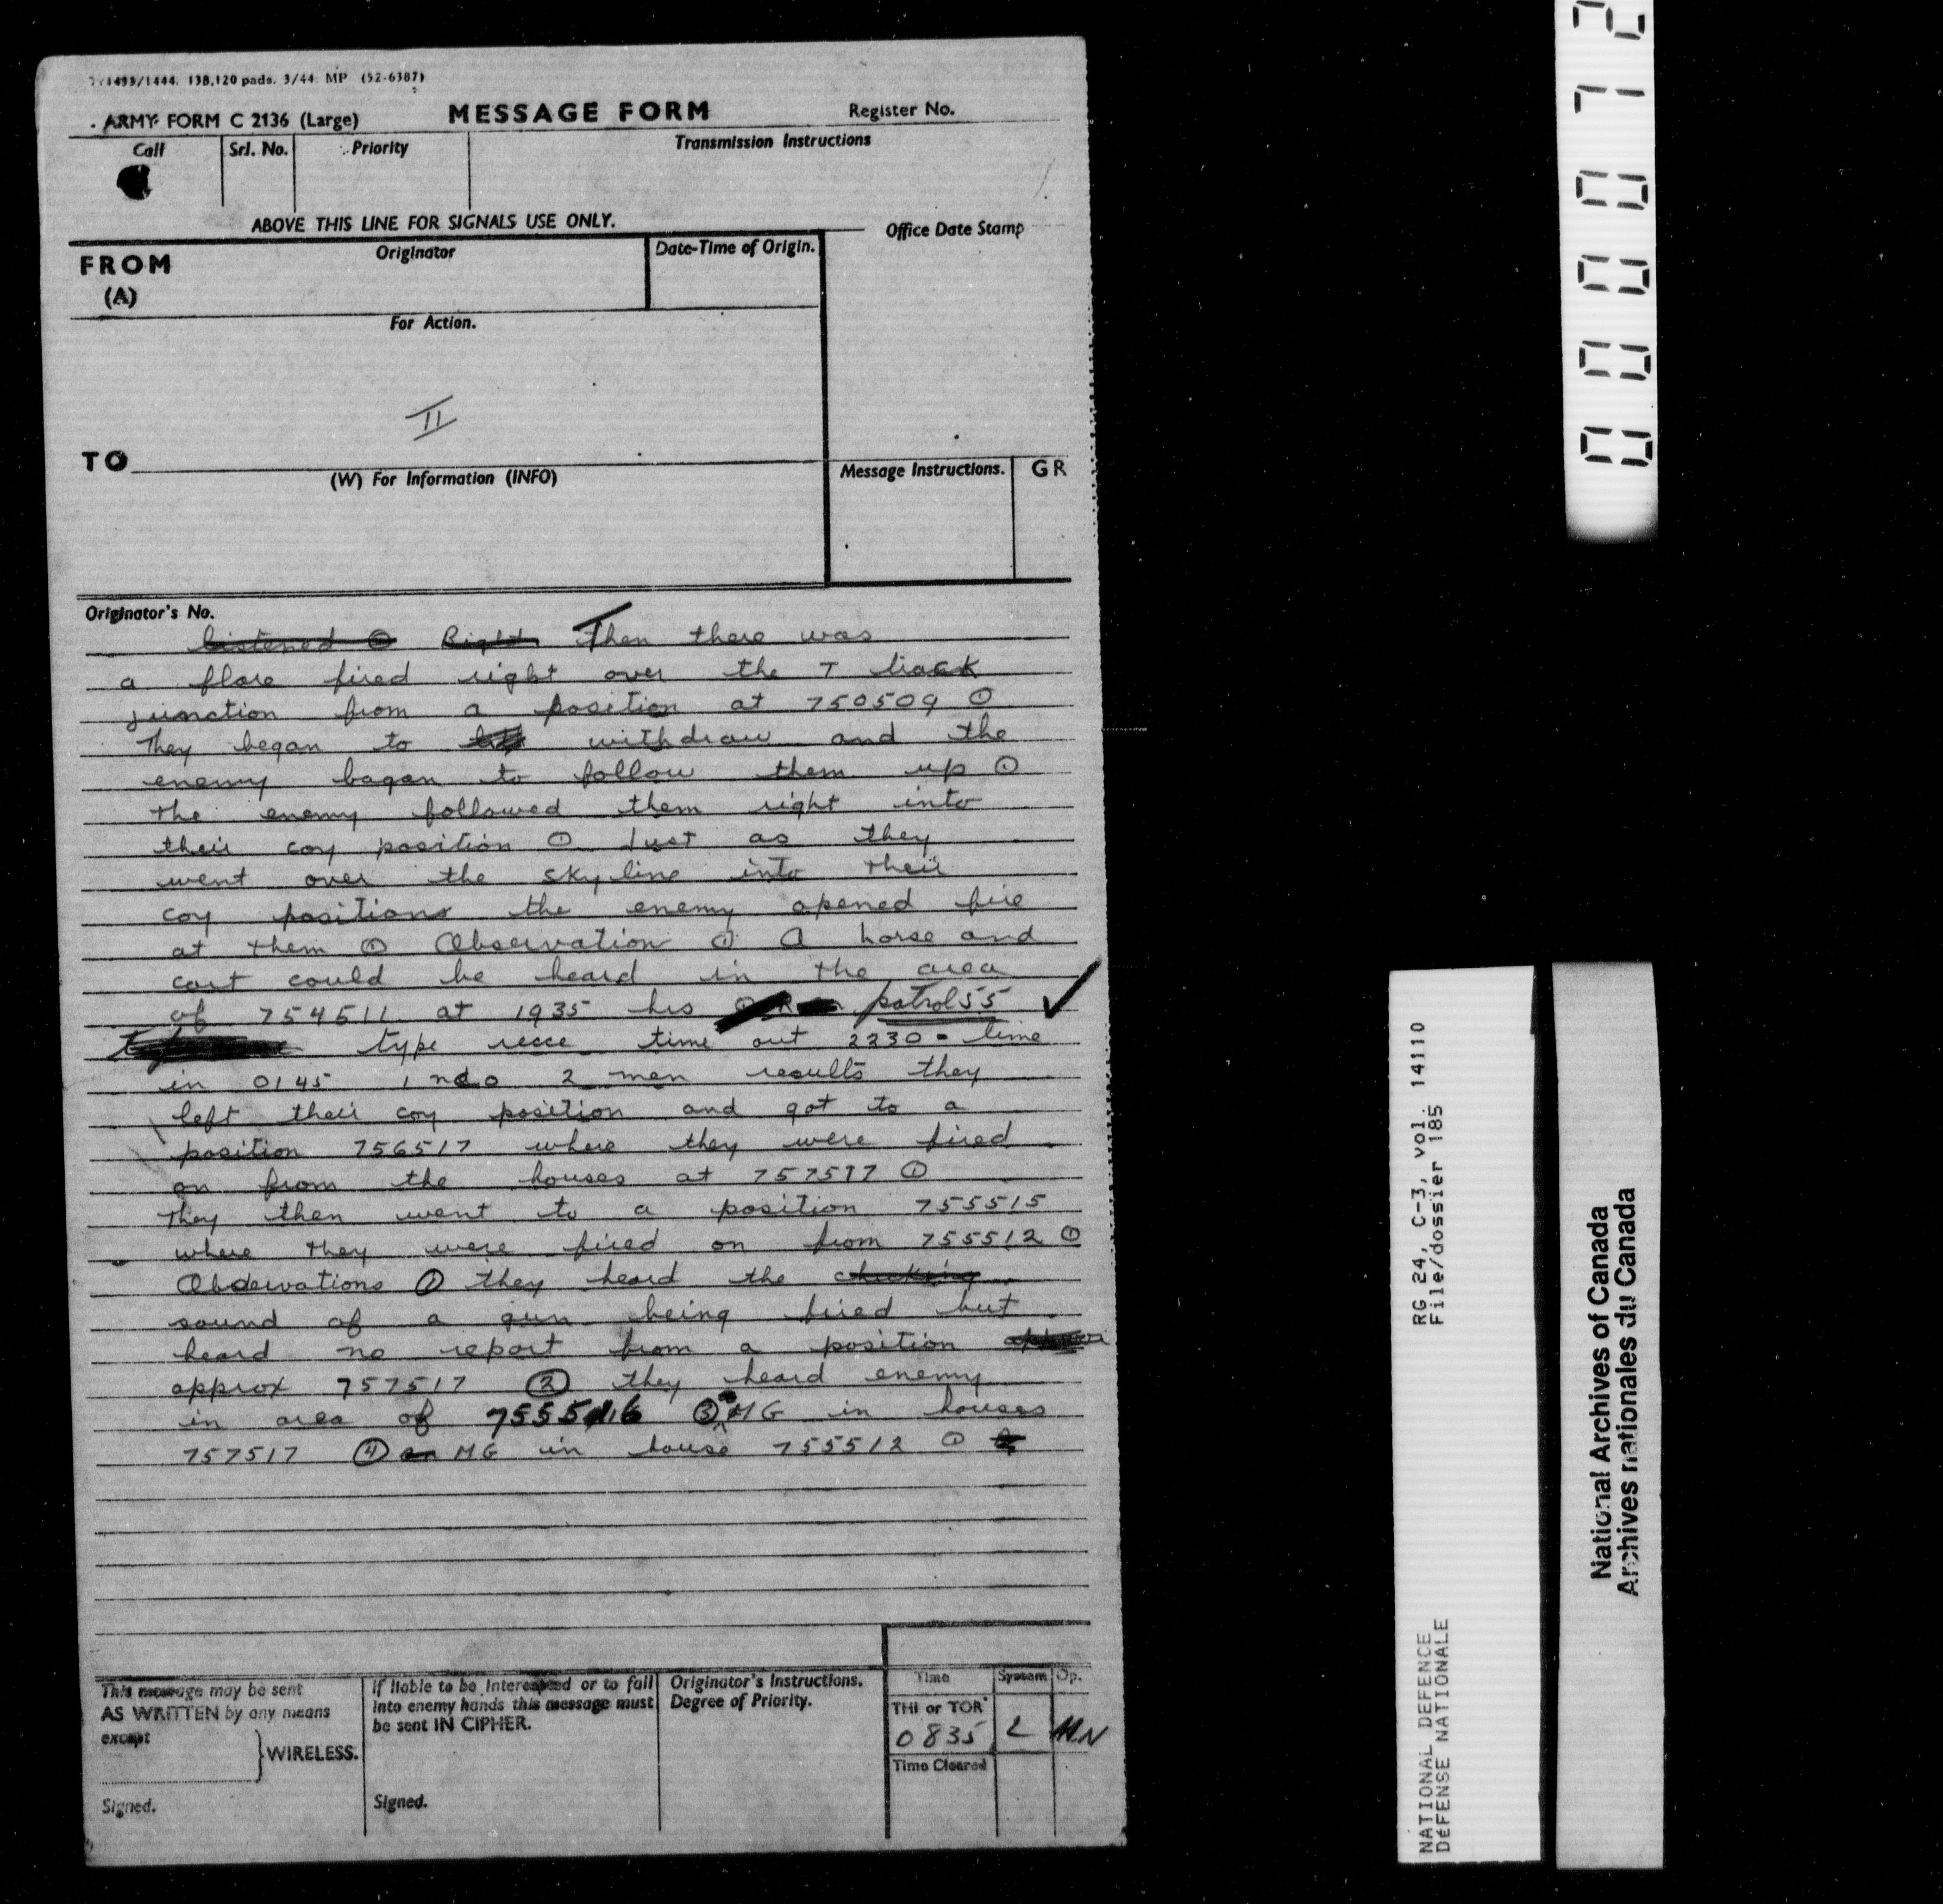 1499/1444. 138,120 pads. 3/44. MP (52-6387)
ARMY FORM C 2136 (Large) MESSAGE FORM Register No.
Call Srl. No. Priority Transmission Instructions
ABOVE THIS LINE FOR SIGNALS USE ONLY.
Office Date Stamp
FROM (A) Originator Date-Time of Origin.
For Action.
II
TO
(W) For Information (INFO) Message Instructions. GR
Originator's No.
listened ⊙ Right Then there was
a flare fired right over the T track
junction from a position at 750509 ⊙
They began to withdraw and the
enemy bagan to follow them up ⊙
the enemy followed them right into
their coy position ⊙ Just as they
went over the skyline into their
coy positions the enemy opened fire
at them ⊙ Observation ⊙ A horse and
cart could be heard in the area
of 754511 at 1935 hrs patrol 55 ✓
type recce time out 2230 - time
in 0145 1 nco 2 men results they
left their coy position and got to a
position 756517 where they were fired
on from the houses at 757517 ⊙
They then went to a position 755515
where they were fired on from 755512 ⊙
Observations ① they heard the
sound of a gun being fired but
heard no report from a position
approx 757517 ② they heard enemy
in area of 755516 ③ MG in houses
757517 ④ MG in house 755512 ⊙
This message may be sent
AS WRITTEN by any means
except
WIRELESS.
Signed.
If liable to be intercepted or to fall
into enemy hands this message must
be sent IN CIPHER.
Signed.
Originator's Instructions.
Degree of Priority.
Time System Op.
THI or TOR
0835 L MN
Time Cleared
0000712
RG 24, C-3, vol. 14110
File/dossier 185
NATIONAL DEFENCE
DÉFENSE NATIONALE
National Archives of Canada
Archives nationales du Canada